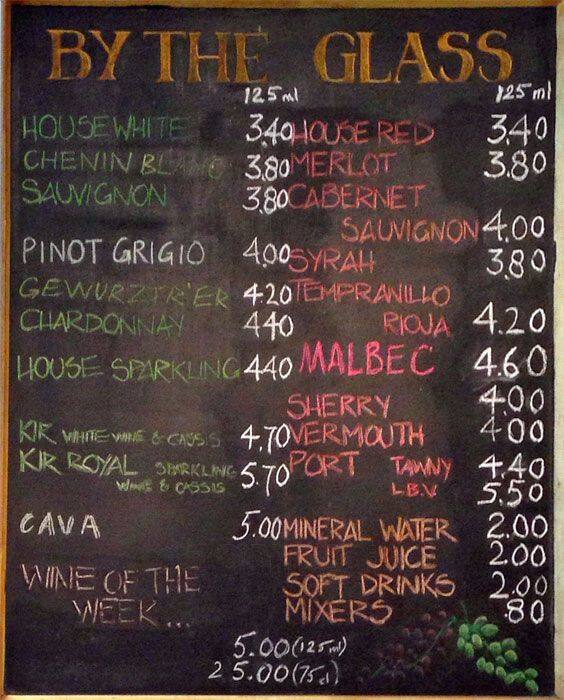 BY THE GLASS
125ml
HOUSE WHITE 3.40
CHENIN BLANC 3.80
SAUVIGNON 3.80
PINOT GRIGIO 4.00
GEWURZTR'ER 4.20
CHARDONNAY 4.40
HOUSE SPARKLING 4.40
KIR WHITE WINE & CASSIS 4.70
KIR ROYAL SPARKLING
WINE & CASSIS 5.70
CAVA 5.00
WINE OF THE
WEEK...
5.00 (125ml)
25.00 (75cl)
125ml
HOUSE RED 3.40
MERLOT 3.80
CABERNET
SAUVIGNON 4.00
SYRAH 3.80
TEMPRANILLO
RIOJA 4.20
MALBEC 4.60
SHERRY 4.00
VERMOUTH 4.00
PORT TAWNY 4.40
L.B.V 5.50
MINERAL WATER 2.00
FRUIT JUICE 2.00
SOFT DRINKS 2.00
MIXERS .80